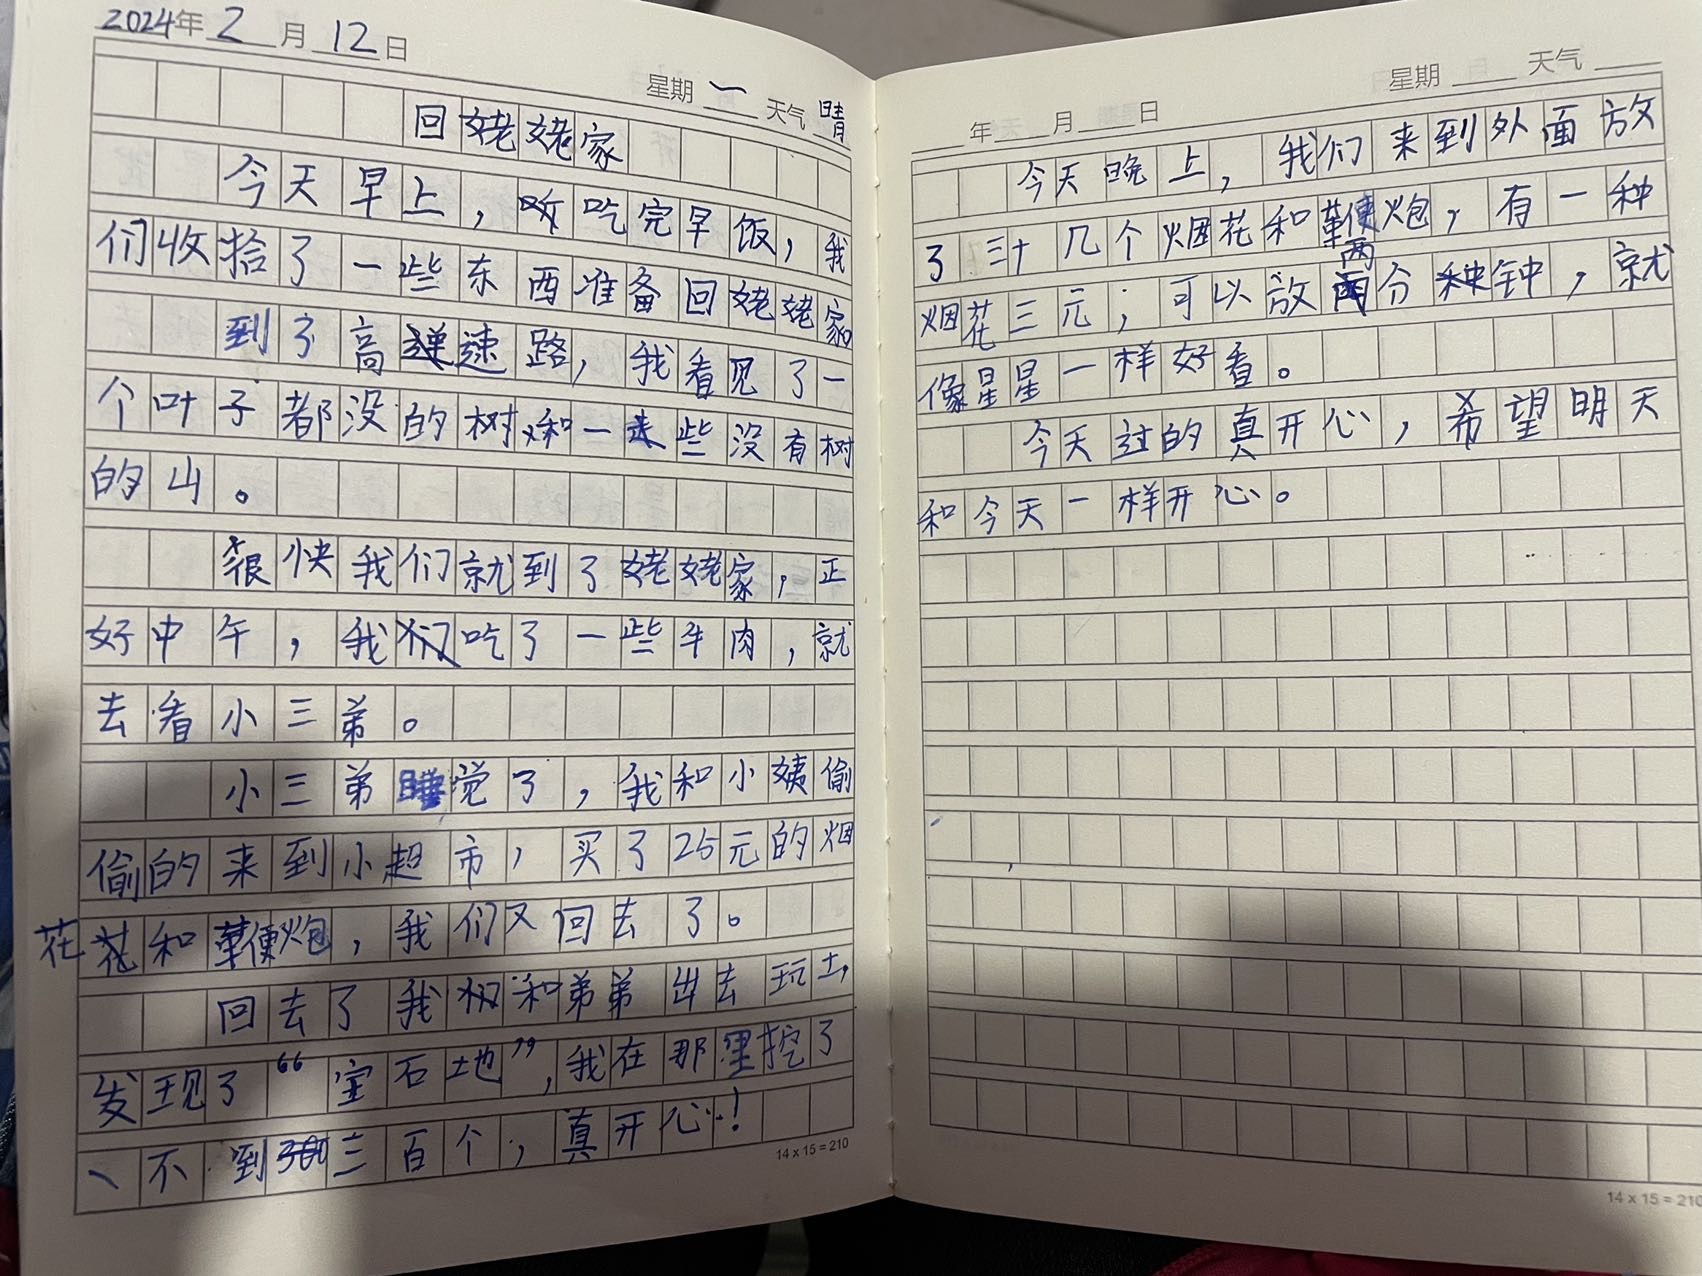 2024年2月12日
星期一 天气晴
回姥姥家
今天早上，吃完早饭，我
们收拾了一些东西准备回姥姥家
到了高速路，我看见了一
个叶子都没的树和一些没有树
的山。
很快我们就到了姥姥家，正
好中午，我们吃了一些牛肉，就
去看小三弟。
小三弟睡觉了，我和小姨偷
偷的来到小超市，买了25元的烟
花和鞭炮，我们又回去了。
回去了我和弟弟出去玩土，
发现了“宝石地”，我在那里挖了
不到三百个，真开心！
14 x 15 = 210
年 月 日
星期 天气
今天晚上，我们来到外面放
了三十几个烟花和鞭炮，有一种
烟花三元；可以放两分钟，就
像星星一样好看。
今天过的真开心，希望明天
和今天一样开心。
14 x 15 = 210